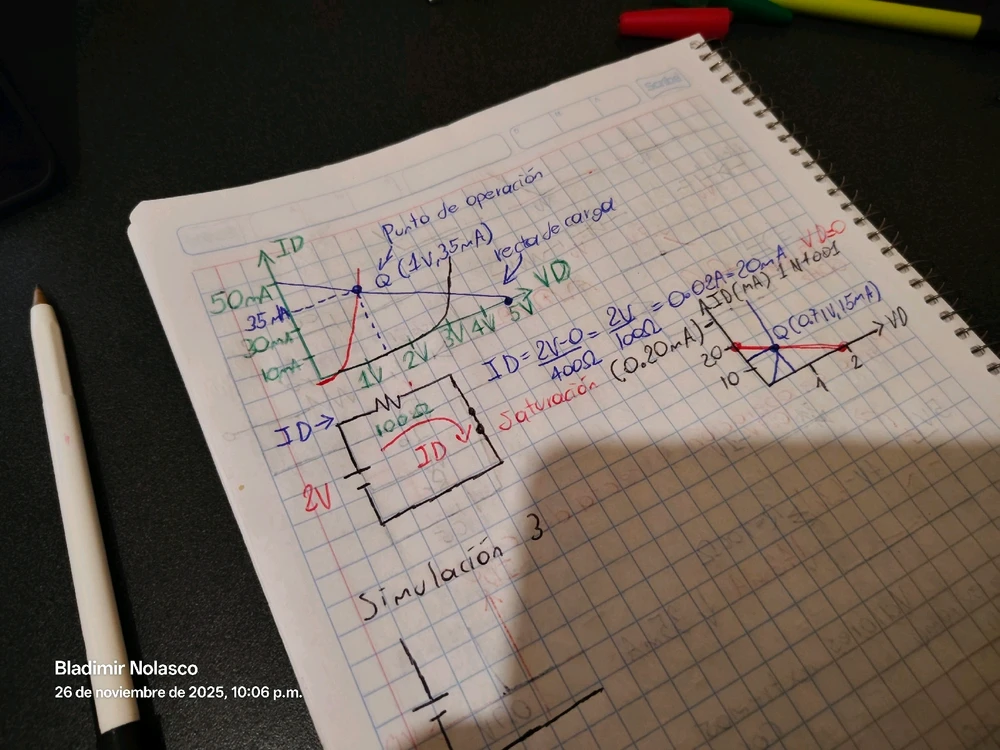 Scribe
Punto de operación
ID
Q (1V,35mA)
recta de carga
VD
50mA
35mA
30mA
10mA
1V 2V 3V 4V 5V
ID = 2V-0 / 400Ω = 2V / 100Ω = 0.02A = 20mA
VD=0
(0.20mA)=
Saturación
ID(mA) 1N4001
Q(0.71V,15mA)
VD
20
10
1 2
ID→
100Ω
ID
2V
Simulación 3
Bladimir Nolasco
26 de noviembre de 2025, 10:06 p.m.